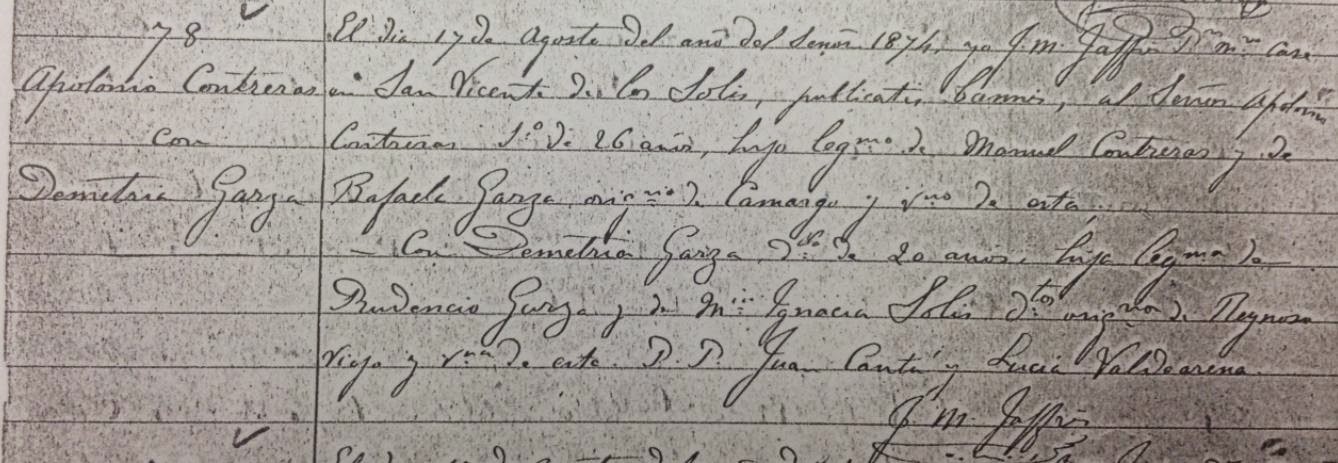 78
Apolonio Contreras
con
Demetria Garza
El dia 17 de Agosto del año del Señor 1874, yo J. M. Jaffrés Pr. mro. case
en San Vicente de los Solis, publicatis bannis, al Señor Apolonio
Contreras So. de 26 años, hijo legmo. de Manuel Contreras y de
Rafaela Garza orignrio. de Camargo y vno. de esta
— Con Demetria Garza, dlla. de 20 anos, hija legma. de
Prudencio Garza y de Mia. Ignacia Solis dtos. de Reynosa
viejo y vna. de esta. P. P. Juan Cantú y Lucia Valdearena.
J. M. Jaffrés